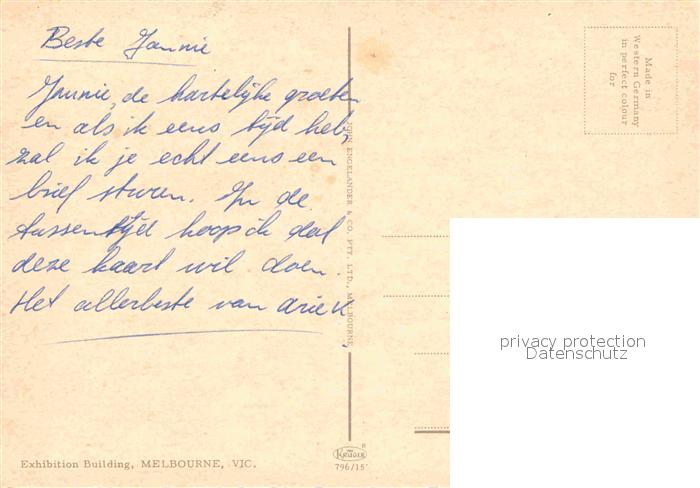 Beste Jannie
Jannie, de hartelijke groeten
en als ik eens tijd heb,
zal ik je echt eens een
brief sturen. In de
tussentijd hoop ik dat
deze kaart wil doen.
Het allerbeste van Ariek
JOHN ENGELANDER & CO. PTY. LTD., MELBOURNE
Made in
Western Germany
in perfect colour
for
privacy protection
Datenschutz
Exhibition Building, MELBOURNE, VIC.
KRÜGER
796/15